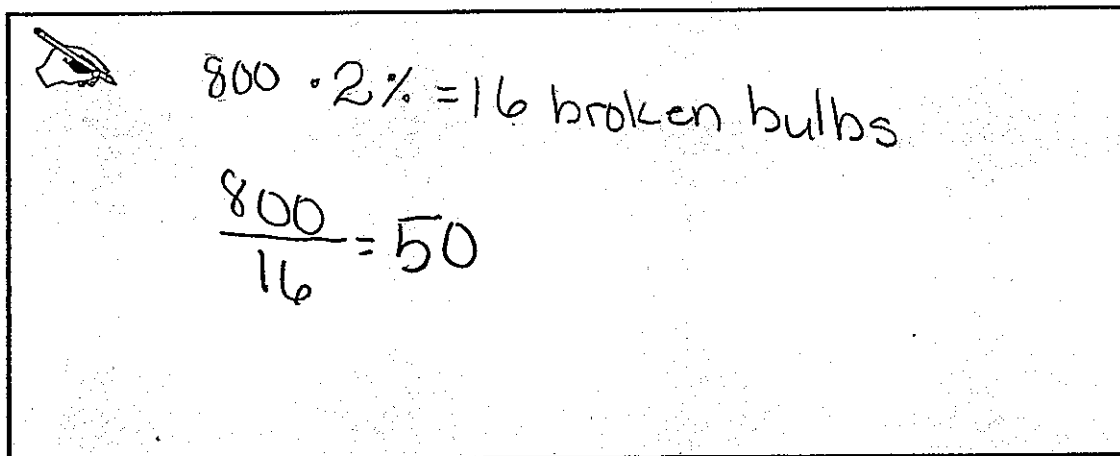 800 · 2% = 16 broken bulbs
800/16 = 50